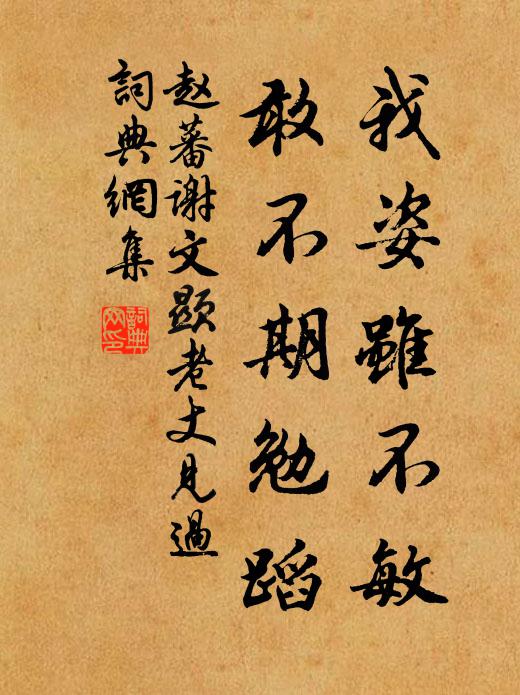 我姿雖不敏
敢不期勉蹈
赵蕃谢文顯老丈見過
詞典網集
詞典网印